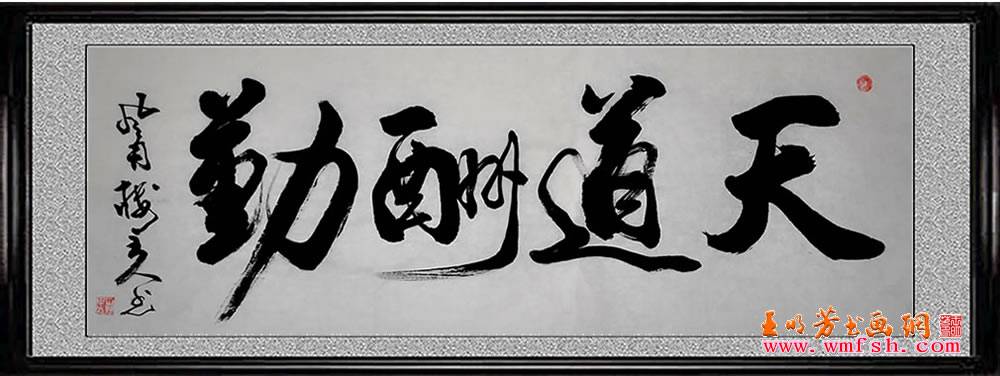 天道酬勤
王明芳书画网
www.wmfsh.com